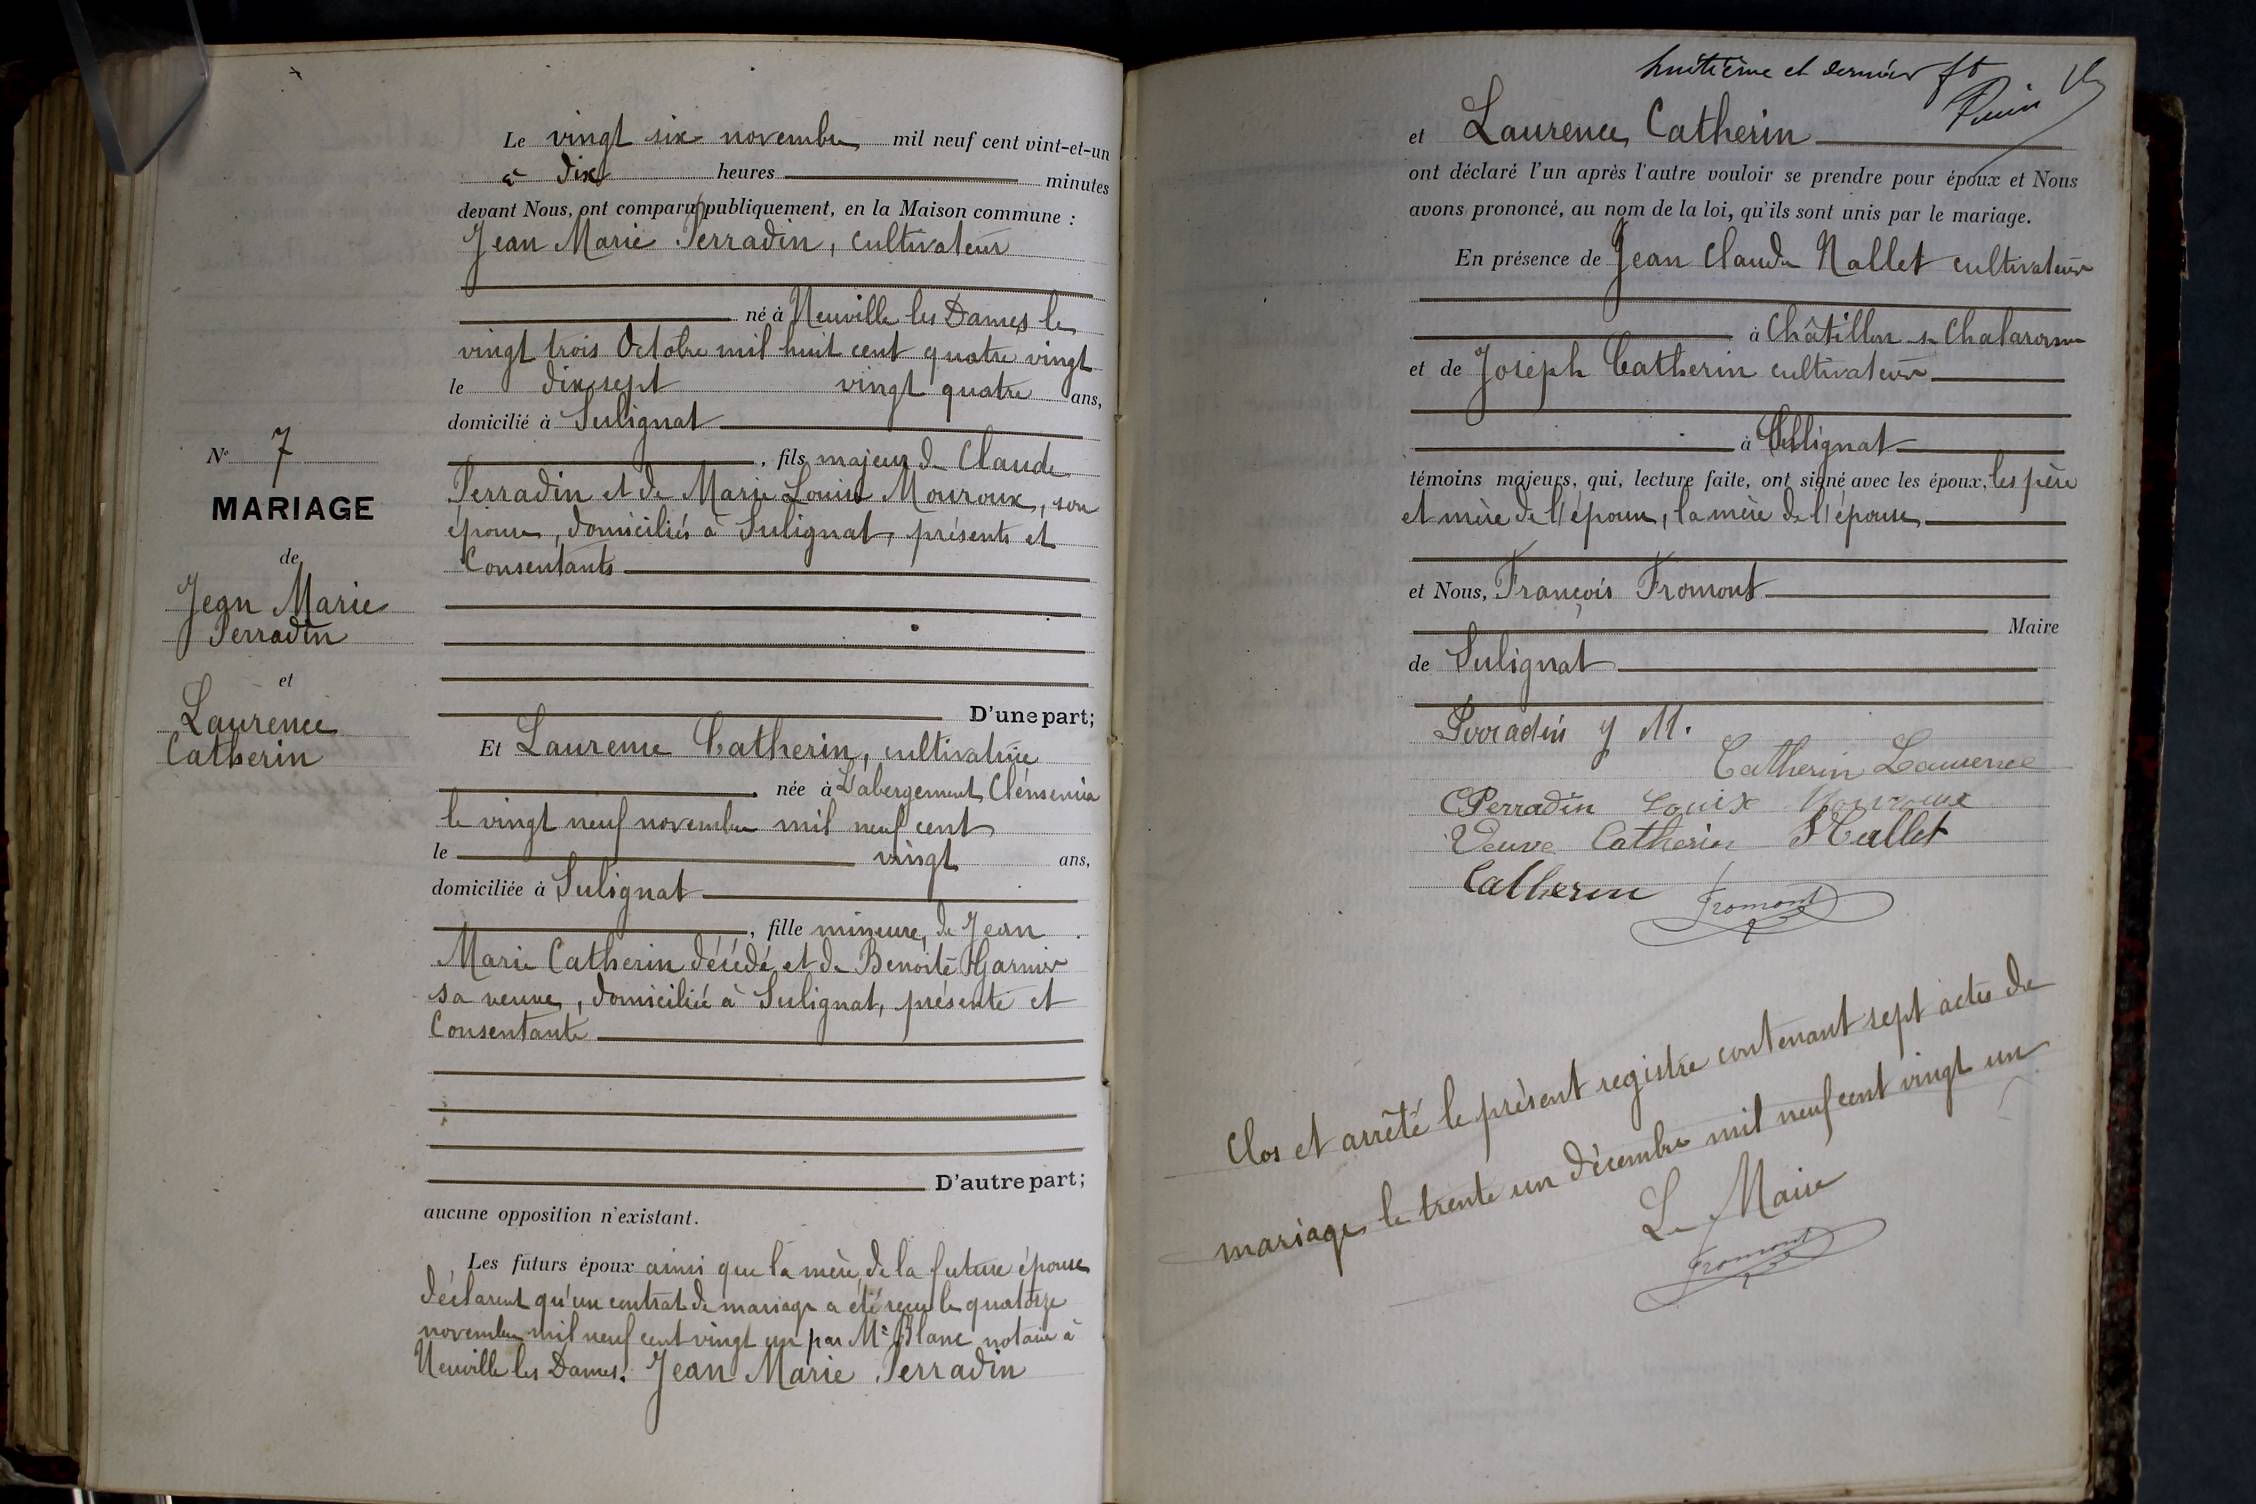 Le vingt six novembre mil neuf cent vint-et-un
à dix heures minutes
devant Nous, ont comparu publiquement, en la Maison commune :
Jean Marie Perradin, cultivateur
né à Neuville les Dames le
vingt trois Octobre mil huit cent quatre vingt
le dix sept vingt quatre ans,
domicilié à Sulignat
, fils majeur de Claude
Perradin et de Marie Louise Mouroux, son
épouse, domiciliés à Sulignat, présents et
Consentants
D'une part;
Et Laurence Catherin, cultivatrice
née à L'abergement Clémencia
le vingt neuf novembre mil neuf cent
le vingt ans,
domiciliée à Sulignat
, fille mineure, de Jean
Marie Catherin décédé et de Benoite Garnier
sa veuve, domiciliée à Sulignat, présente et
Consentante
D'autre part;
aucune opposition n'existant.
Les futurs époux ainsi que la mère de la future épouse
déclarent qu'un contrat de mariage a été reçu le quatorze
novembre mil neuf cent vingt un par Me Blanc notaire à
Neuville les Dames. Jean Marie Perradin
No 7
MARIAGE
de
Jean Marie
Perradin
et
Laurence
Catherin
huitième et dernier ft
et Laurence Catherin
ont déclaré l'un après l'autre vouloir se prendre pour époux et Nous
avons prononcé, au nom de la loi, qu'ils sont unis par le mariage.
En présence de Jean Claude Nallet cultivateur
à Châtillon sr Chalaronne
et de Joseph Catherin cultivateur
à Sulignat
témoins majeurs, qui, lecture faite, ont signé avec les époux, les père
et mère de l'époux, la mère de l'épouse
et Nous, François Fromont
Maire
de Sulignat
Perradin J M.
Catherin Laurence
C Perradin Louix Mouroux
Veuve Catherin Nallet
Catherin Fromont
Clos et arrêté le présent registre contenant sept actes de
mariage le trente un décembre mil neuf cent vingt un
Le Maire
Fromont